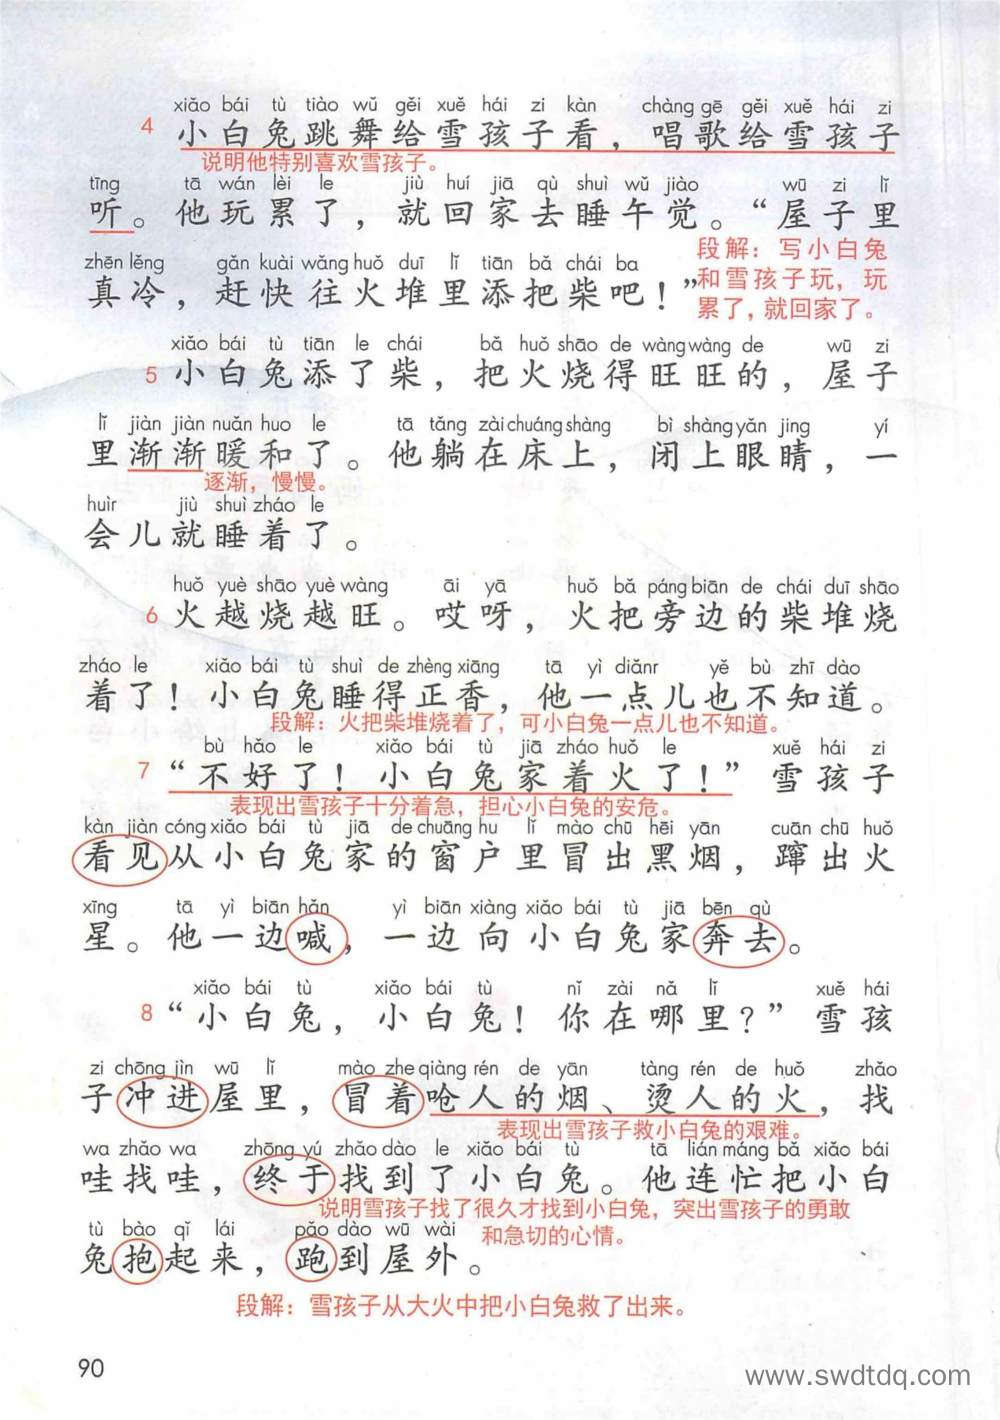 xiǎo bái tù tiào wǔ gěi xuě hái zi kàn chàng gē gěi xuě hái zi
4 小白兔跳舞给雪孩子看，唱歌给雪孩子
说明他特别喜欢雪孩子。
tīng tā wán lèi le jiù huí jiā qù shuì wǔ jiào wū zi lǐ
听。他玩累了，就回家去睡午觉。“屋子里
段解：写小白兔
和雪孩子玩，玩
累了，就回家了。
zhēn lěng gǎn kuài wǎng huǒ duī lǐ tiān bǎ chái ba
真冷，赶快往火堆里添把柴吧！”
xiǎo bái tù tiān le chái bǎ huǒ shāo de wàng wàng de wū zi
5 小白兔添了柴，把火烧得旺旺的，屋子
lǐ jiàn jiàn nuǎn huo le tā tǎng zài chuáng shàng bì shàng yǎn jing yí
里渐渐暖和了。他躺在床上，闭上眼睛，一
逐渐，慢慢。
huìr jiù shuì zháo le
会儿就睡着了。
huǒ yuè shāo yuè wàng āi yā huǒ bǎ páng biān de chái duī shāo
6 火越烧越旺。哎呀，火把旁边的柴堆烧
zháo le xiǎo bái tù shuì de zhèng xiāng tā yì diǎnr yě bù zhī dào
着了！小白兔睡得正香，他一点儿也不知道。
段解：火把柴堆烧着了，可小白兔一点儿也不知道。
bù hǎo le xiǎo bái tù jiā zháo huǒ le xuě hái zi
7 “不好了！小白兔家着火了！”雪孩子
表现出雪孩子十分着急，担心小白兔的安危。
kàn jiàn cóng xiǎo bái tù jiā de chuāng hu lǐ mào chū hēi yān cuān chū huǒ
看见从小白兔家的窗户里冒出黑烟，蹿出火
xīng tā yì biān hǎn yì biān xiàng xiǎo bái tù jiā bēn qù
星。他一边喊，一边向小白兔家奔去。
xiǎo bái tù xiǎo bái tù nǐ zài nǎ lǐ xuě hái
8 “小白兔，小白兔！你在哪里？”雪孩
zi chōng jìn wū lǐ mào zhe qiàng rén de yān tàng rén de huǒ zhǎo
子冲进屋里，冒着呛人的烟、烫人的火，找
表现出雪孩子救小白兔的艰难。
wa zhǎo wa zhōng yú zhǎo dào le xiǎo bái tù tā lián máng bǎ xiǎo bái
哇找哇，终于找到了小白兔。他连忙把小白
说明雪孩子找了很久才找到小白兔，突出雪孩子的勇敢
和急切的心情。
tù bào qǐ lái pǎo dào wū wài
兔抱起来，跑到屋外。
段解：雪孩子从大火中把小白兔救了出来。
90
www.swdtdq.com